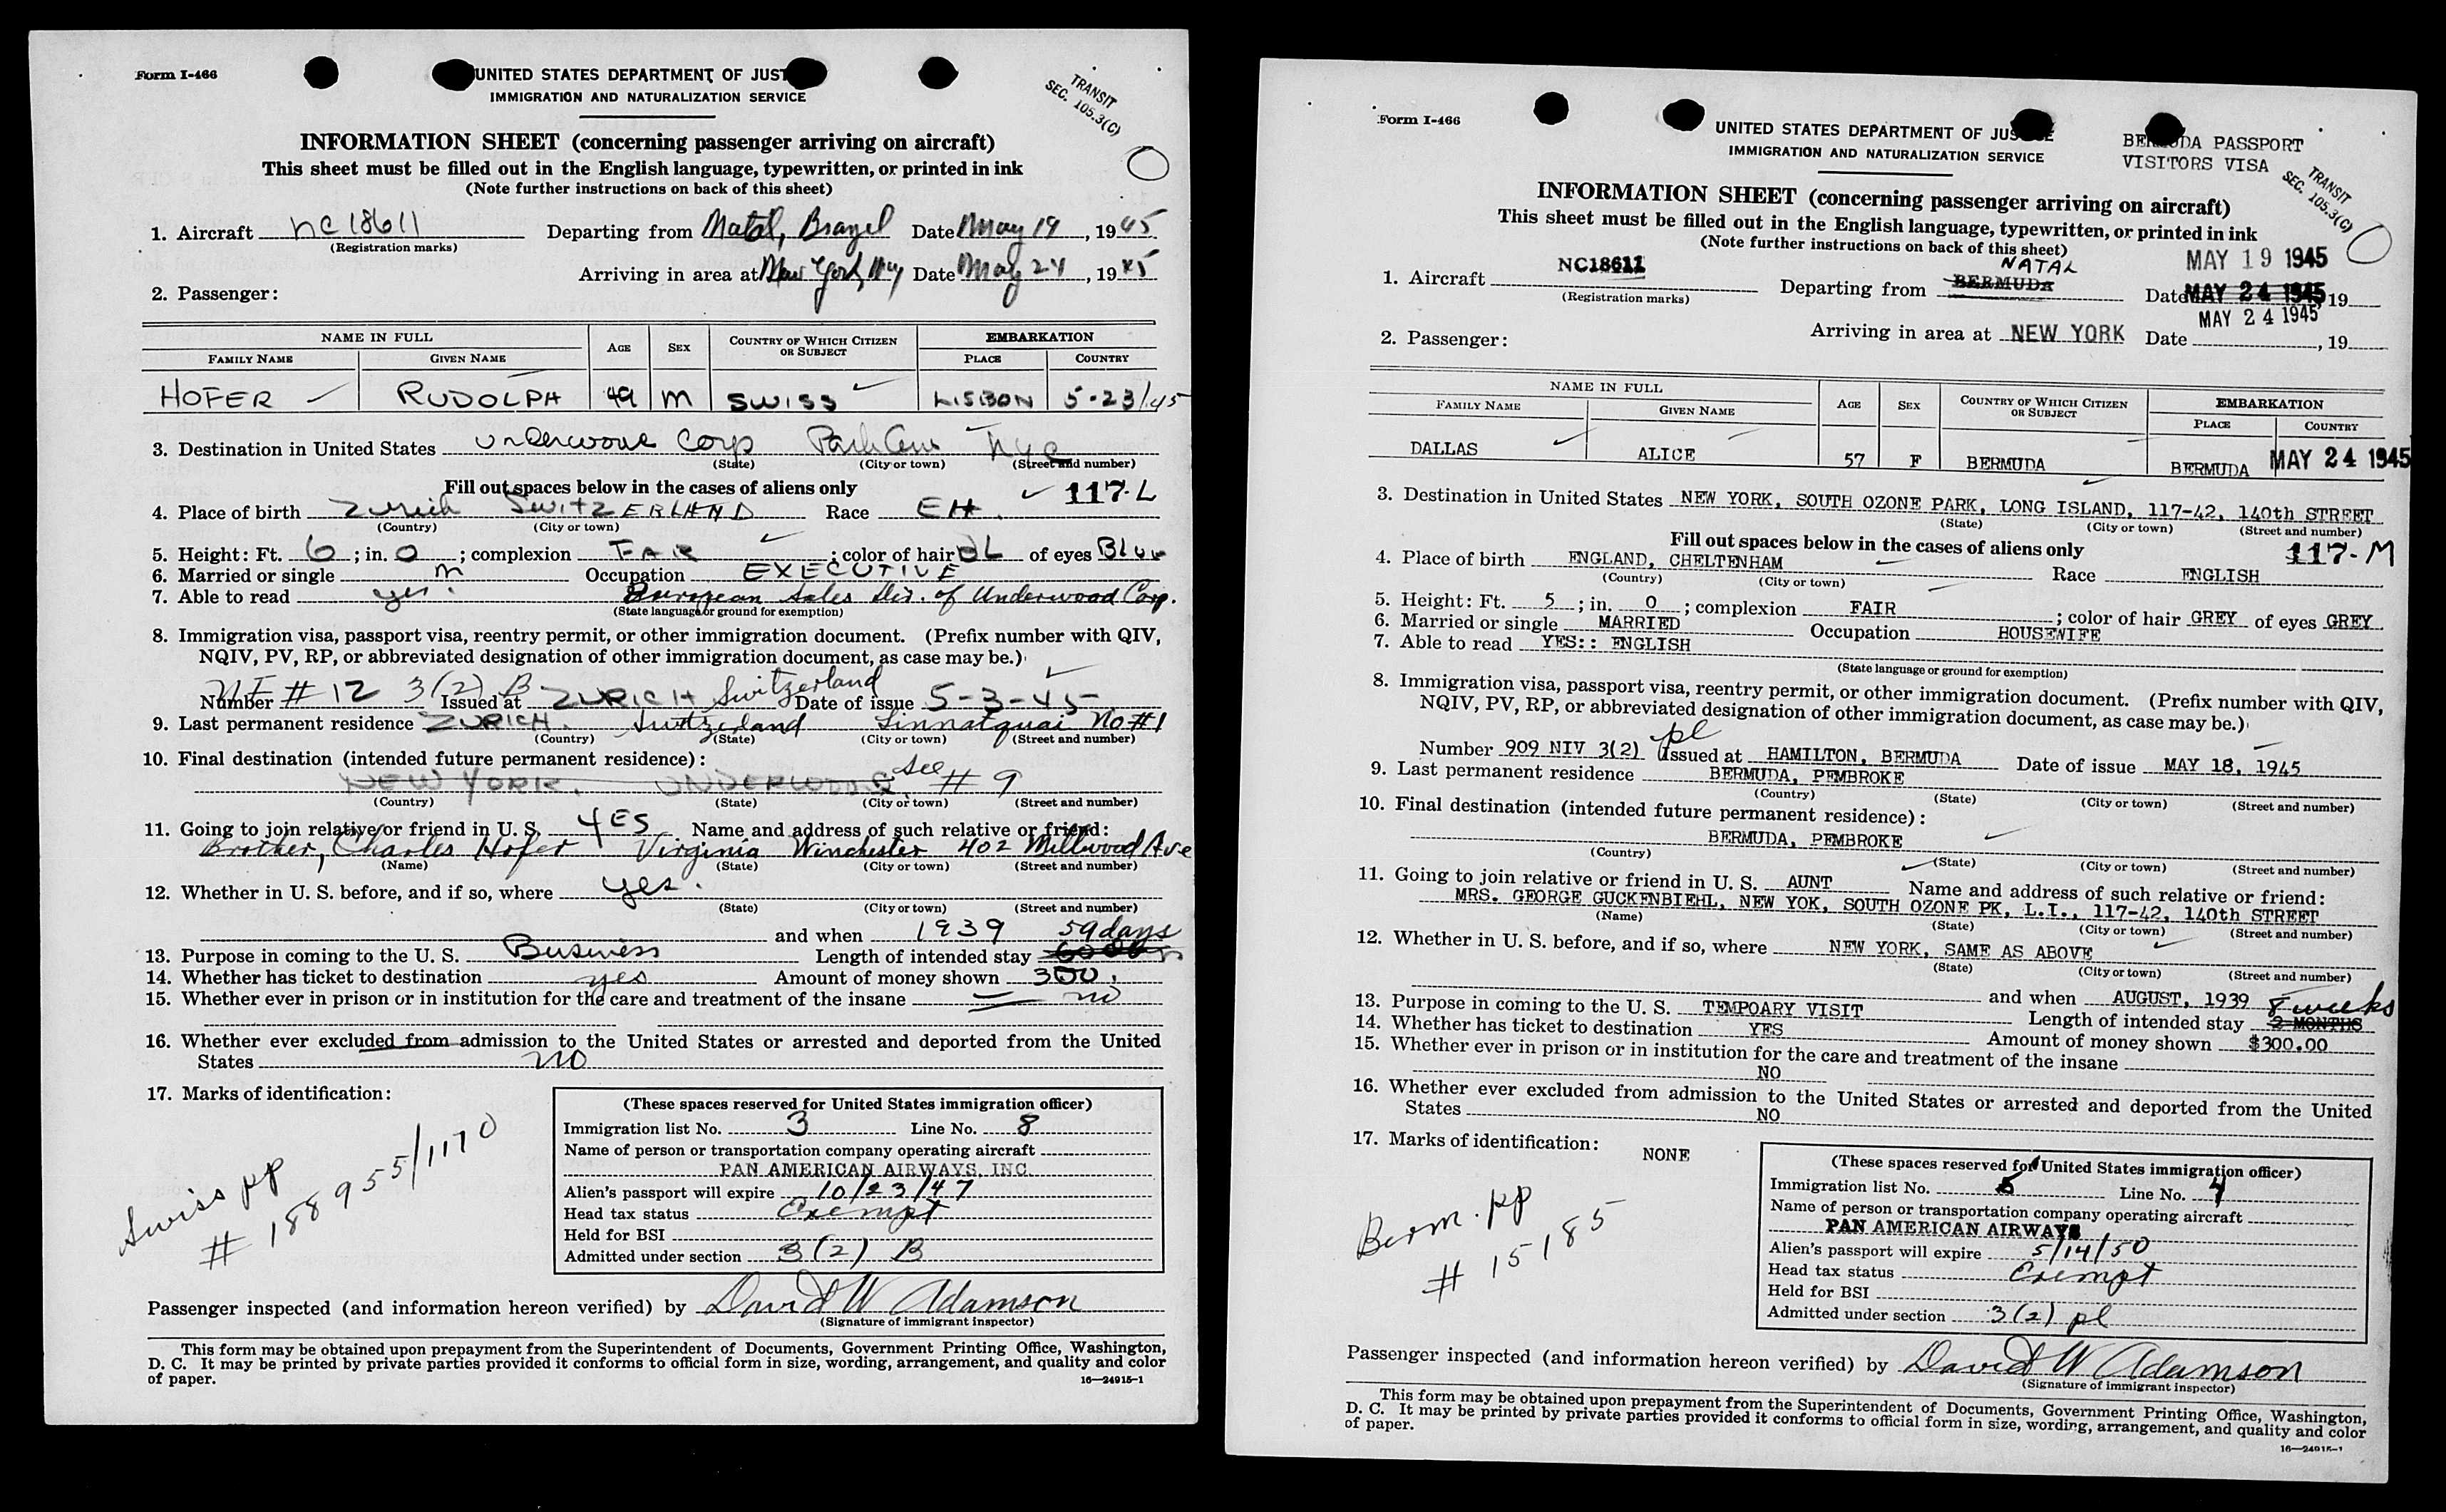 Form I-466
UNITED STATES DEPARTMENT OF JUST
IMMIGRATION AND NATURALIZATION SERVICE
TRANSIT
SEC. 105.3(C)
INFORMATION SHEET (concerning passenger arriving on aircraft)
This sheet must be filled out in the English language, typewritten, or printed in ink
(Note further instructions on back of this sheet)
1. Aircraft NC18611 Departing from Natal, Brazil Date May 19, 1945
(Registration marks)
Arriving in area at New York, NY Date May 24, 1945
2. Passenger:
NAME IN FULL AGE SEX COUNTRY OF WHICH CITIZEN OR SUBJECT EMBARKATION
FAMILY NAME GIVEN NAME PLACE COUNTRY
HOFER RUDOLPH 49 M SWISS LISBON 5-23/45
3. Destination in United States Underwood Corp Park Ave NYC
(State) (City or town) (Street and number)
Fill out spaces below in the cases of aliens only 117-L
4. Place of birth Zurich SWITZERLAND Race EH.
(Country) (City or town)
5. Height: Ft. 6; in. 0; complexion FAIR; color of hair BL of eyes Blue
6. Married or single M Occupation EXECUTIVE
7. Able to read yes. European Sales Div. of Underwood Corp.
(State language or ground for exemption)
8. Immigration visa, passport visa, reentry permit, or other immigration document. (Prefix number with QIV,
NQIV, PV, RP, or abbreviated designation of other immigration document, as case may be.)
Number # 12 3(2) B Issued at ZURICH Switzerland Date of issue 5-3-45
9. Last permanent residence ZURICH. Switzerland Limmatquai No #1
(Country) (State) (City or town) (Street and number)
10. Final destination (intended future permanent residence):
NEW YORK. UNDERWOOD See # 9
(Country) (State) (City or town) (Street and number)
11. Going to join relative or friend in U. S. YES Name and address of such relative or friend:
Brother, Charles Hofer Virginia Winchester 402 Millwood Ave
(Name) (State) (City or town) (Street and number)
12. Whether in U. S. before, and if so, where yes.
(State) (City or town) (Street and number)
and when 1939 59 days
13. Purpose in coming to the U. S. Business Length of intended stay
14. Whether has ticket to destination yes Amount of money shown 300.
15. Whether ever in prison or in institution for the care and treatment of the insane no
16. Whether ever excluded from admission to the United States or arrested and deported from the United
States no
17. Marks of identification:
Swiss pp
# 188955/1170
(These spaces reserved for United States immigration officer)
Immigration list No. 3 Line No. 8
Name of person or transportation company operating aircraft
PAN AMERICAN AIRWAYS, INC.
Alien's passport will expire 10/23/47
Head tax status Exempt
Held for BSI
Admitted under section 3(2) B
Passenger inspected (and information hereon verified) by David W Adamson
(Signature of immigrant inspector)
This form may be obtained upon prepayment from the Superintendent of Documents, Government Printing Office, Washington,
D. C. It may be printed by private parties provided it conforms to official form in size, wording, arrangement, and quality and color
of paper.
16—24915-1
Form I-466
UNITED STATES DEPARTMENT OF JUS E
IMMIGRATION AND NATURALIZATION SERVICE
BERMUDA PASSPORT
VISITORS VISA
TRANSIT
SEC. 105.3(C)
INFORMATION SHEET (concerning passenger arriving on aircraft)
This sheet must be filled out in the English language, typewritten, or printed in ink
(Note further instructions on back of this sheet)
NATAL MAY 19 1945
1. Aircraft NC18611 Departing from BERMUDA Date MAY 24 1945, 19
(Registration marks)
MAY 24 1945
2. Passenger: Arriving in area at NEW YORK Date , 19
NAME IN FULL AGE SEX COUNTRY OF WHICH CITIZEN OR SUBJECT EMBARKATION
FAMILY NAME GIVEN NAME PLACE COUNTRY
DALLAS ALICE 57 F BERMUDA BERMUDA MAY 24 1945
3. Destination in United States NEW YORK, SOUTH OZONE PARK, LONG ISLAND, 117-42, 140th STREET
(State) (City or town) (Street and number)
Fill out spaces below in the cases of aliens only 117-M
4. Place of birth ENGLAND, CHELTENHAM Race ENGLISH
(Country) (City or town)
5. Height: Ft. 5; in. 0; complexion FAIR; color of hair GREY of eyes GREY
6. Married or single MARRIED Occupation HOUSEWIFE
7. Able to read YES:: ENGLISH
(State language or ground for exemption)
8. Immigration visa, passport visa, reentry permit, or other immigration document. (Prefix number with QIV,
NQIV, PV, RP, or abbreviated designation of other immigration document, as case may be.)
Number 909 NIV 3(2) pl Issued at HAMILTON, BERMUDA Date of issue MAY 18, 1945
9. Last permanent residence BERMUDA, PEMBROKE
(Country) (State) (City or town) (Street and number)
10. Final destination (intended future permanent residence):
BERMUDA, PEMBROKE
(Country) (State) (City or town) (Street and number)
11. Going to join relative or friend in U. S. AUNT Name and address of such relative or friend:
MRS. GEORGE GUCKENBIEHL, NEW YOK, SOUTH OZONE PK, L.I., 117-42, 140th STREET
(Name) (State) (City or town) (Street and number)
12. Whether in U. S. before, and if so, where NEW YORK, SAME AS ABOVE
(State) (City or town) (Street and number)
and when AUGUST, 1939 8 weeks
13. Purpose in coming to the U. S. TEMPOARY VISIT Length of intended stay 2 MONTHS
14. Whether has ticket to destination YES Amount of money shown $300.00
15. Whether ever in prison or in institution for the care and treatment of the insane
NO
16. Whether ever excluded from admission to the United States or arrested and deported from the United
States NO
17. Marks of identification: NONE
Berm. pp
# 15185
(These spaces reserved for United States immigration officer)
Immigration list No. 5 Line No. 4
Name of person or transportation company operating aircraft
PAN AMERICAN AIRWAYS
Alien's passport will expire 5/14/50
Head tax status Exempt
Held for BSI
Admitted under section 3(2) pl
Passenger inspected (and information hereon verified) by David W Adamson
(Signature of immigrant inspector)
This form may be obtained upon prepayment from the Superintendent of Documents, Government Printing Office, Washington,
D. C. It may be printed by private parties provided it conforms to official form in size, wording, arrangement, and quality and color
of paper.
16—24915-1